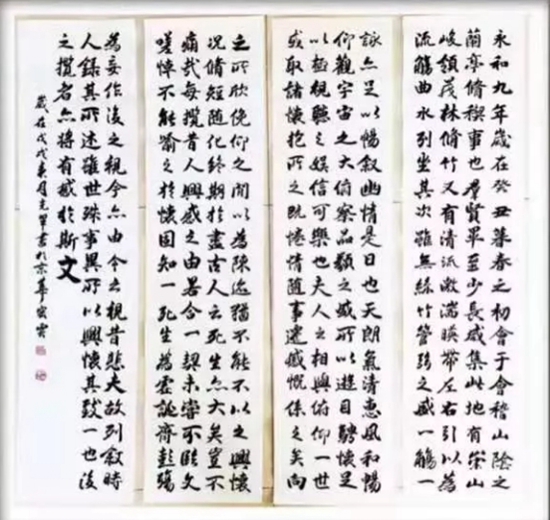 永和九年歲在癸丑暮春之初會于會稽山陰之
蘭亭脩稧事也羣賢畢至少長咸集此地有崇山
峻領茂林脩竹又有清流激湍暎帶左右引以為
流觴曲水列坐其次雖無絲竹管弦之盛一觴一
詠亦足以暢叙幽情是日也天朗氣清惠風和暢
仰觀宇宙之大俯察品類之盛所以遊目騁懷足
以極視聽之娛信可樂也夫人之相與俯仰一世
或取諸懷抱所之既惓情隨事遷感慨係之矣向
之所欣俛仰之間以為陳迹猶不能不以之興懷
况脩短隨化終期於盡古人云死生亦大矣豈不
痛哉每攬昔人興感之由若合一契未嘗不臨文
嗟悼不能喻之於懷固知一死生為虛誕齊彭殤
為妄作後之視今亦由今之視昔悲夫故列叙時
人錄其所述雖世殊事異所以興懷其致一也後
之攬者亦將有感於斯文
歲在戊戌月書於京華